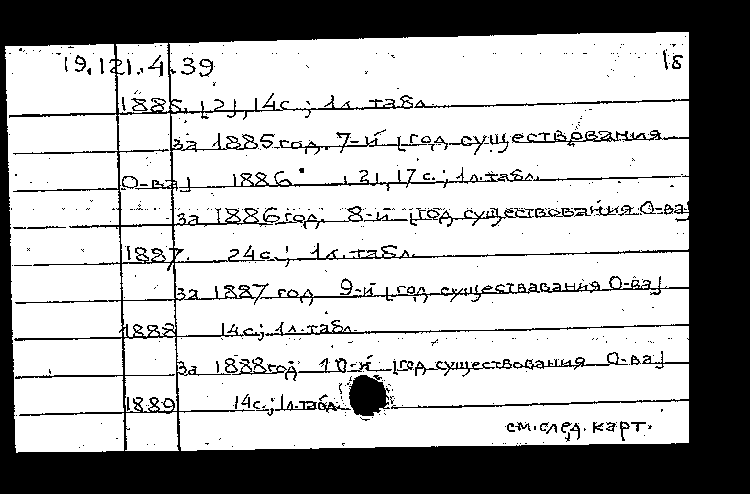 19.121.4.39 18
1885. [2], 14с.; 1л. табл.
за 1885 год. 7-й [год существования
О-ва] 1886. [2], 17 с.; 1л. табл.
за 1886 год. 8-й [год существования О-ва]
1887. 24с.; 1л. табл.
за 1887 год 9-й [год существавания О-ва]
1888 14с.; 1л. табл.
за 1888 год 10-й [год существования О-ва]
1889 14с.; 1л. табл.
см. след. карт.